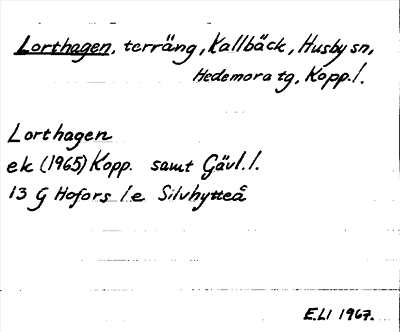 Lorthagen, terräng, Kallbäck, Husby sn,
Hedemora tg, Kopp. l.
Lorthagen
ek (1965) Kopp. samt Gävl. l.
13 G Hofors l e Silvhytteå
E.LI 1967.